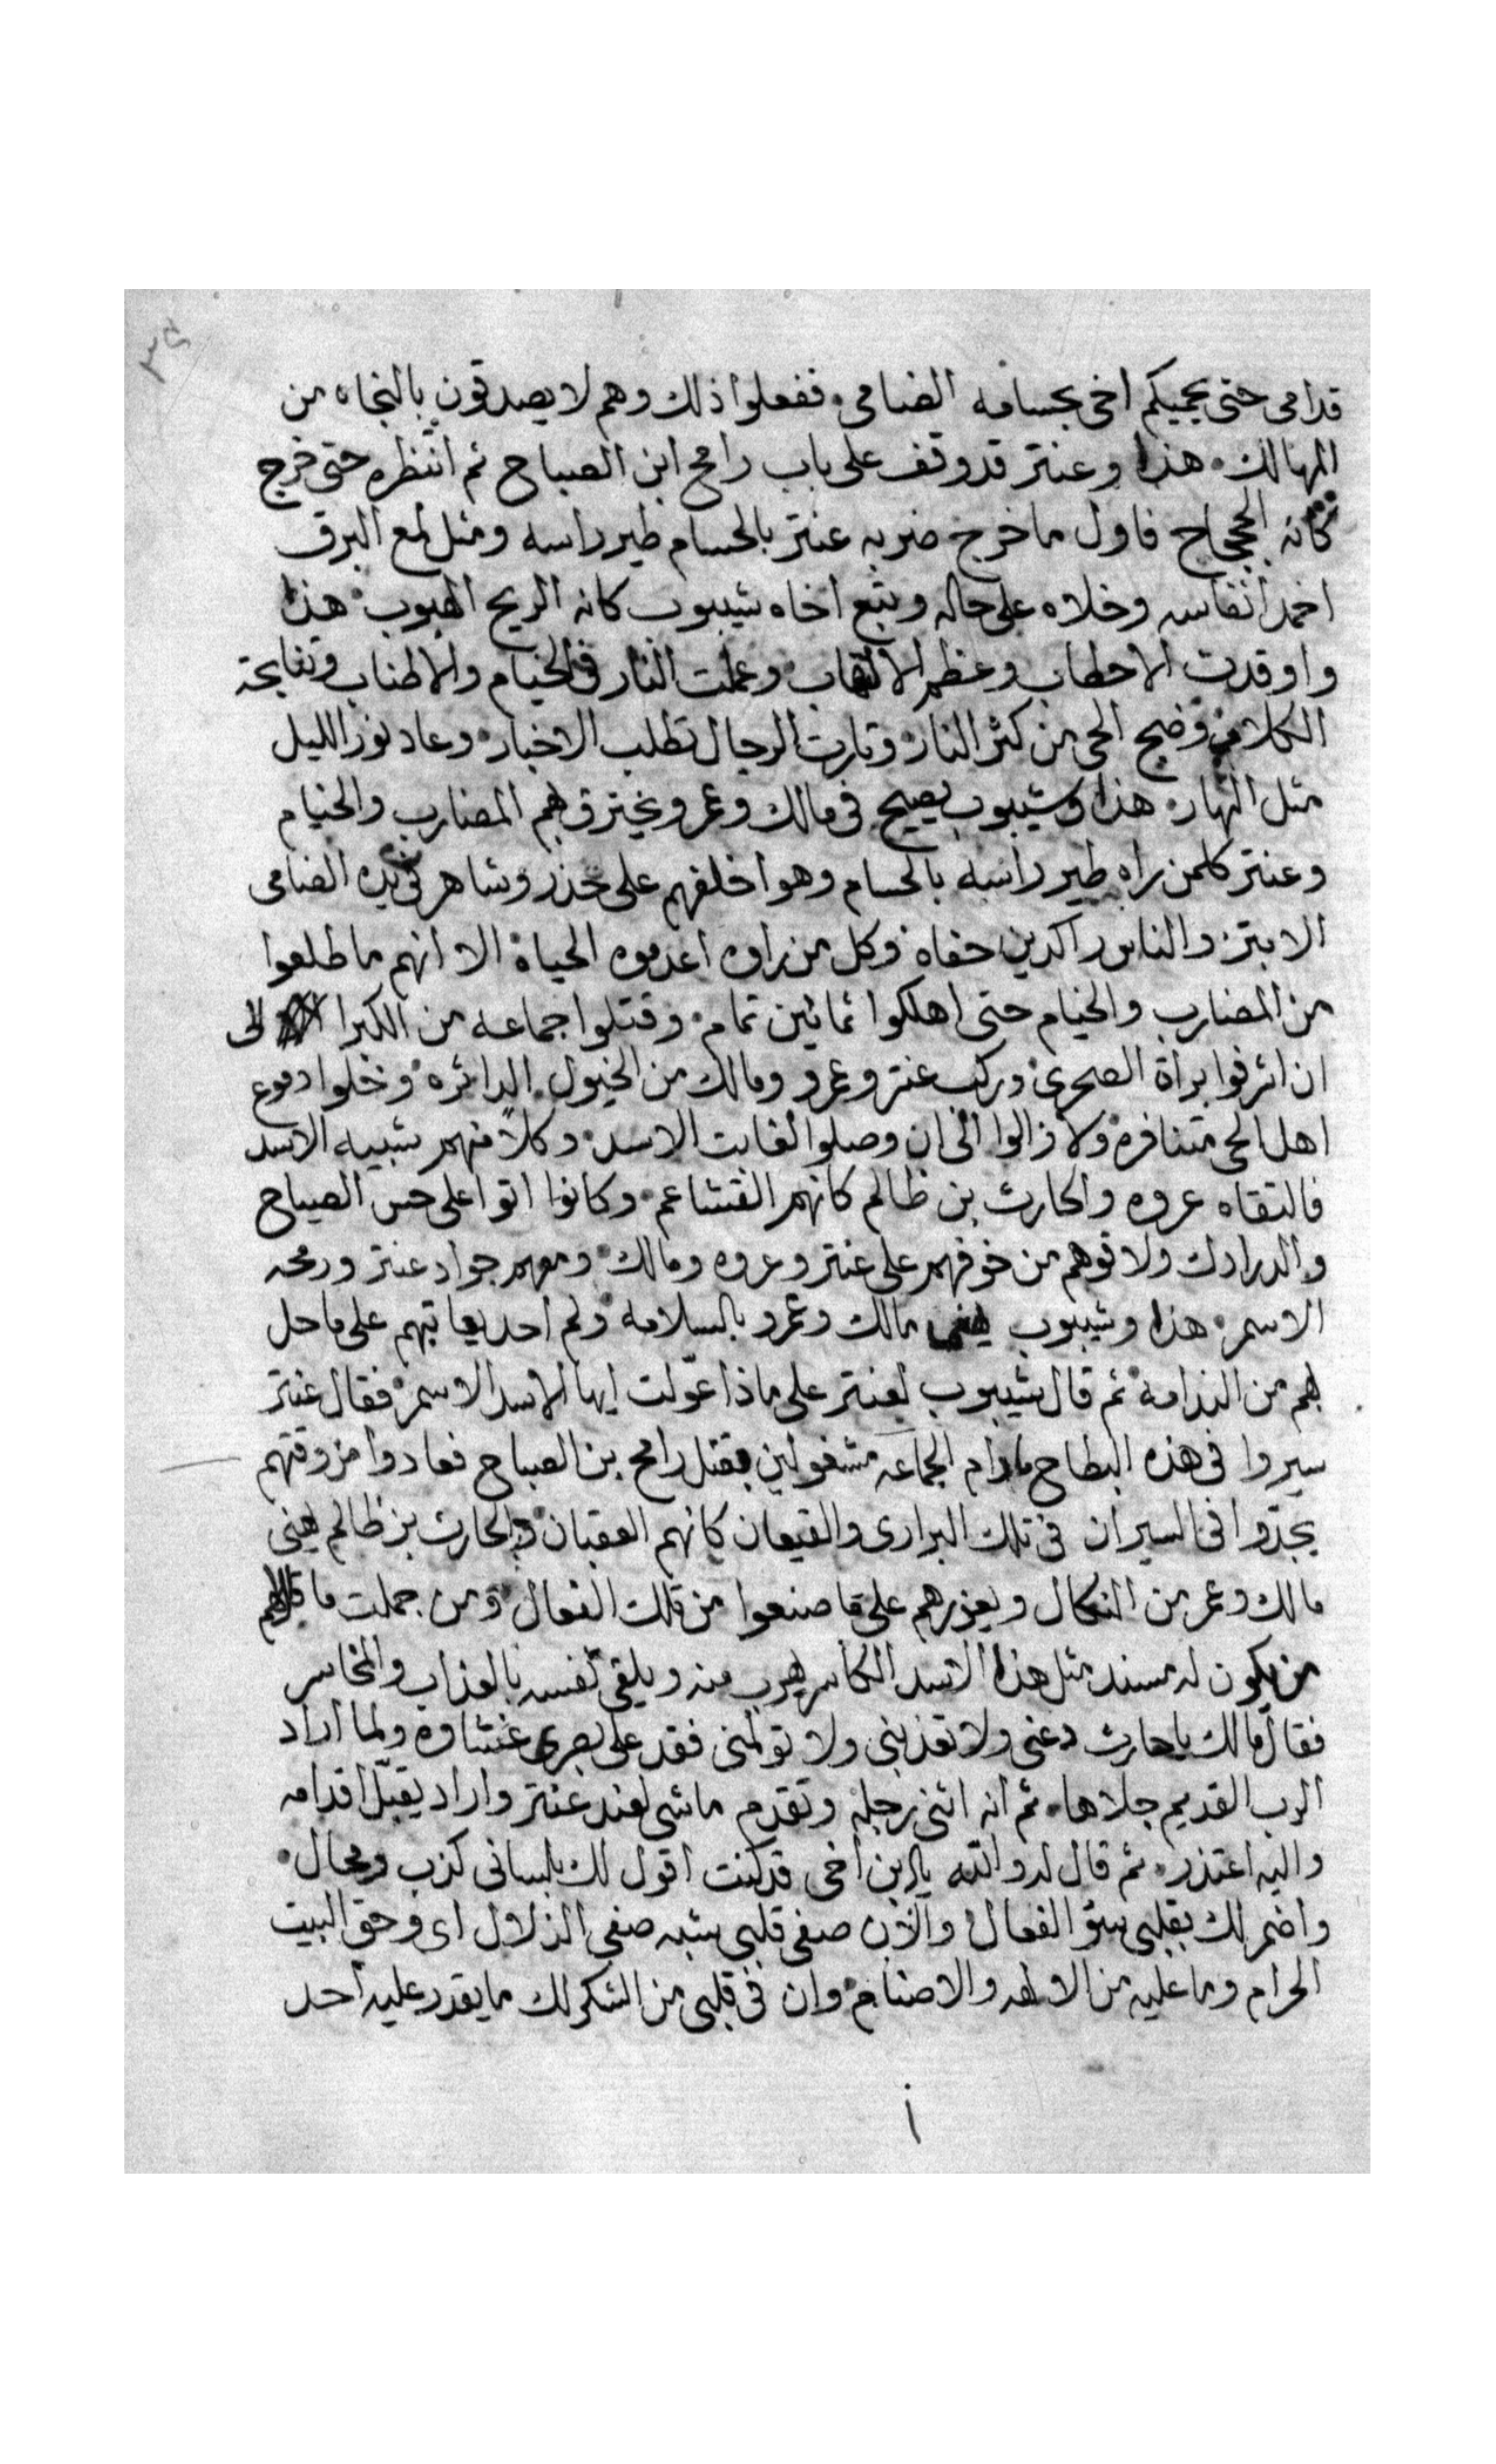 ٣٤
قدامى حتى يحميكم اخى بحسامه الضامى ففعلوا ذلك وهم لا يصدقون بالنجاه من
المهالك هذا وعنتر قد وقف على باب رامح ابن الصباح ثم انتظره حتى خرج
كانه الجحجاح فاول ما خرج ضربه عنتر بالحسام طير راسه ومثل لمع البرق
اخمد انفاسه وخلاه على حاله وتبع اخاه شيبوب كانه الريح الهبوب هذا
واوقدت الاحطاب وعظم الالتهاب وعملت النار فى الخيام والاطناب وتنابحة
الكلاب وضج الحى من كثر النار وثارت الرجال تطلب الاخبار وعاد نور الليل
مثل النهار هذا وشيبوب يصيح فى مالك وعمرو ويخترق بهم المضارب والخيام
وعنتر كلمن راه طير راسه بالحسام وهوا خلفهم على حذر وشاهر فى يده الضامى
الابتر والناس راكدين حفاه وكل من راوه اعدموه الحياة الا انهم ما طلعوا
من المضارب والخيام حتى اهلكوا ثمانين تمام وقتلوا جماعه من الكبرا الى
ان اشرفوا برأة الصحرى وركب عنتر وعمرو ومالك من الخيول الدائره وخلوا دموع
اهل الحى متنافره ولا زالوا الى ان وصلوا لغابت الاسد وكلاً منهم شبيه الاسد
فالتقاه عروه والحارث بن ظالم كانهم القشاعم وكانوا اتوا على حس الصياح
والدرادك ولاقوهم من خوفهم على عنتر وعروه ومالك ومعهم جواد عنتر ورمحه
الاسمر هذا وشيبوب يهنى مالك وعمرو بالسلامه ولم احد يعاتبهم على ما حل
بهم من الندامه ثم قال شيبوب لعنتر على ماذا عوّلت ايها الاسد الاسمر فقال عنتر
سيروا فى هذه البطاح مادام الجماعه مشغولين بقتل رامح بن الصباح فعادوا من وقتهم
يجدّوا فى السيران فى تلك البرارى والقيعان كانهم العقبان والحارث بن ظالم يهنى
مالك وعمر من النكال ويعزرهم على ما صنعوا من تلك الفعال ومن جملت ما قال لهم
من يكون له مسند مثل هذا الاسد الكاسر يهرب منه ويلقى نفسه بالعذاب والمخاسر
فقال مالك يا حارث دعنى ولا تعذبنى ولا تولمنى فقد على بصرى غشاوه ولما اراد
الرب القديم جلاها ثم انه اثنى رجله وتقدم ماشى لعند عنتر واراد يقبّل اقدامه
واليه اعتذر ثم قال له والله يا ابن اخى قد كنت اقول لك بلسانى كذب ومحال
واضمر لك بقلبى سؤ الفعال والآن صفى قلبى شبه صفى الزلال اى وحق البيت
الحرام وما عليه من الالهه والاصنام وان فى قلبى من الشكر لك ما يقدر عليه احد